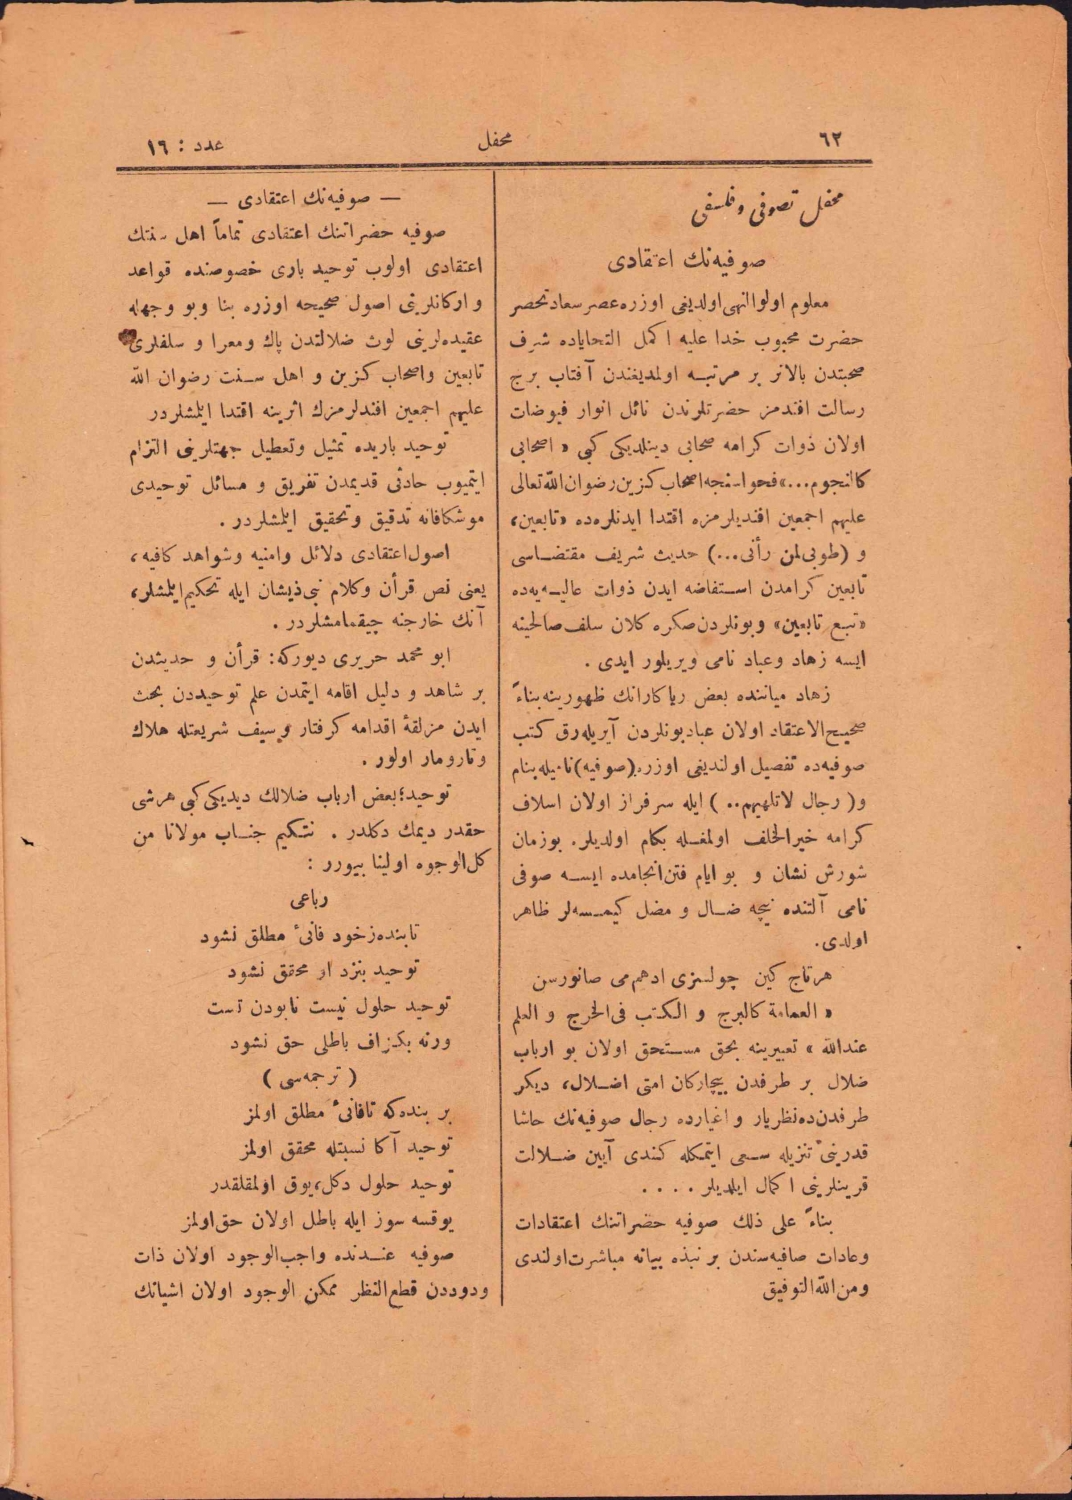 ٦٢
محفل
عدد : ١٦
محفل تصوفی وفلسفی
صوفیه‌نك اعتقادی
معلوم اولوا النهی اولدیغی اوزره عصر سعادتحصر
حضرت محبوب خدا علیه اكمل التحایاده شرف
صحبتدن بالاتر بر مرتبه اولمدیغندن آفتاب برج
رسالت افندمز حضرتلرندن نائل انوار فیوضات
اولان ذوات كرامه صحابی دینلدیكی كبی « اصحابی
كالنجوم...» فحواسنجه اصحاب كزین رضوان الله تعالی
علیهم اجمعین افندیلرمزه اقتدا ایدنلره‌ده «تابعین»
و (طوبی لمن رأنی...) حدیث شریف مقتضاسی
تابعین كرامدن استفاضه ایدن ذوات عالیه‌یه‌ده
«تبع تابعین» وبونلردن صكره كلان سلف صالحینه
ایسه زهاد وعباد نامی ویریلور ایدی .
زهاد میاننده بعض ریاكارانك ظهورینه بناءً
صحیح الاعتقاد اولان عباد بونلردن آیریله‌رق كتب
صوفیه‌ده تفصیل اولندیغی اوزره (صوفیه) نامیله بنام
و( رجال لاتلهیهم.. ) ایله سرفراز اولان اسلاف
كرامه خیر الخلف اولمغله بكام اولدیلر. بوزمان
شورش نشان و بو ایام فتن انجامده ایسه صوفی
نامی آلتنده نیچه ضال و مضل كیمسه‌لر ظاهر
اولدی.
هرتاج كین چولسزی ادهم‌می صانورسن
« العمامة كالبرج و الكتب فی الخرج و العلم
عند الله » تعبیرینه بحق مستحق اولان بو ارباب
ضلال بر طرفدن بیچاركان امتی اضلال، دیكر
طرفدن‌ده نظریار و اغیارده رجال صوفیه‌نك حاشا
قدرینی تنزیله سعی ایتمكله كندی آیین ضلالت
قرینلرینی اكمال ایلدیلر . . . .
بناءً علی ذلك صوفیه حضراتنك اعتقادات
وعادات صافیه‌سندن بر نبذه بیانه مباشرت اولندی
ومن الله التوفیق
— صوفیه‌نك اعتقادی —
صوفیه حضراتنك اعتقادی تماماً اهل سنتك
اعتقادی اولوب توحید باری خصوصنده قواعد
و اركانلرینی اصول صحیحه اوزره بنا وبو وجهله
عقیده‌لرینی لوث ضلالتدن پاك ومعرا و سلفلری
تابعین واصحاب كزین و اهل سنت رضوان الله
علیهم اجمعین افندلرمزك اثرینه اقتدا ایلمشلردر
توحید باریده تمثیل وتعطیل جهتلرینی التزام
ایتمیوب حادثی قدیمدن تفریق و مسائل توحیدی
موشكافانه تدقیق وتحقیق ایلمشلردر .
اصول اعتقادی دلائل وامنیه وشواهد كافیه،
یعنی نص قرأن وكلام نبی ذیشان ایله تحكیم ایلمشلر،
آنك خارجنه چیقمامشلردر .
ابو محمد حریری دیوركه: قرأن و حدیثدن
بر شاهد و دلیل اقامه ایتمدن علم توحیددن بحث
ایدن مزلقهٔ اقدامه كرفتار و سیف شریعتله هلاك
وتارومار اولور .
توحید؛ بعض ارباب ضلالك دیدیكی كبی هرشی
حقدر دیمك دكلدر . نتكیم جناب مولانا من
كل الوجوه اولینا بیورر :
رباعی
تابنده زخود فانیٔ مطلق نشود
توحید بنزد او محقق نشود
توحید حلول نیست نابودن تست
ورنه بكزاف باطلی حق نشود
( ترجمه‌سی )
بر بنده‌كه تافانیٔ مطلق اولمز
توحید آكا نسبتله محقق اولمز
توحید حلول دكل، یوق اولمقلقدر
یوقسه سوز ایله باطل اولان حق اولمز
صوفیه عندنده واجب الوجود اولان ذات
ودوددن قطع النظر ممكن الوجود اولان اشیانك